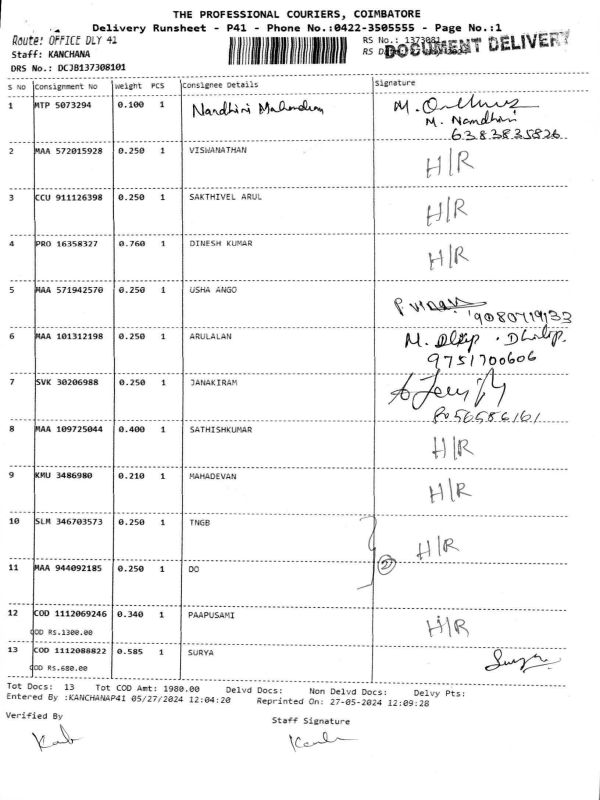 THE PROFESSIONAL COURIERS, COIMBATORE
Delivery Runsheet - P41 - Phone No.:0422-3505555 - Page No.:1
Route: OFFICE DLY 41
RS No.: 1373081
Staff: KANCHANA
RS
DOCUMENT DELIVERY
DRS No.: DCJB137308101
S No Consignment No Weight PCS Consignee Details Signature
1 MTP 5073294 0.100 1 Nandhini Mahendran M.
M. Nandhini
6383835826
2 MAA 572015928 0.250 1 VISWANATHAN H/R
3 CCU 911126398 0.250 1 SAKTHIVEL ARUL H/R
4 PRO 16358327 0.760 1 DINESH KUMAR H/R
5 MAA 571942570 0.250 1 USHA ANGO P.
9080719133
6 MAA 101312198 0.250 1 ARULALAN M.
9751700606
7 SVK 30206988 0.250 1 JANAKIRAM
8056586161
8 MAA 109725044 0.400 1 SATHISHKUMAR H/R
9 KMU 3486980 0.210 1 MAHADEVAN H/R
10 SLM 346703573 0.250 1 TNGB H/R
11 MAA 944092185 0.250 1 DO 2
12 COD 1112069246 0.340 1 PAAPUSAMI H/R
COD RS.1300.00
13 COD 1112088822 0.585 1 SURYA Surya
COD RS.680.00
Tot Docs: 13 Tot COD Amt: 1980.00 Delvd Docs: Non Delvd Docs: Delvy Pts:
Entered By :KANCHANAP41 05/27/2024 12:04:20 Reprinted On: 27-05-2024 12:09:28
Verified By Staff Signature